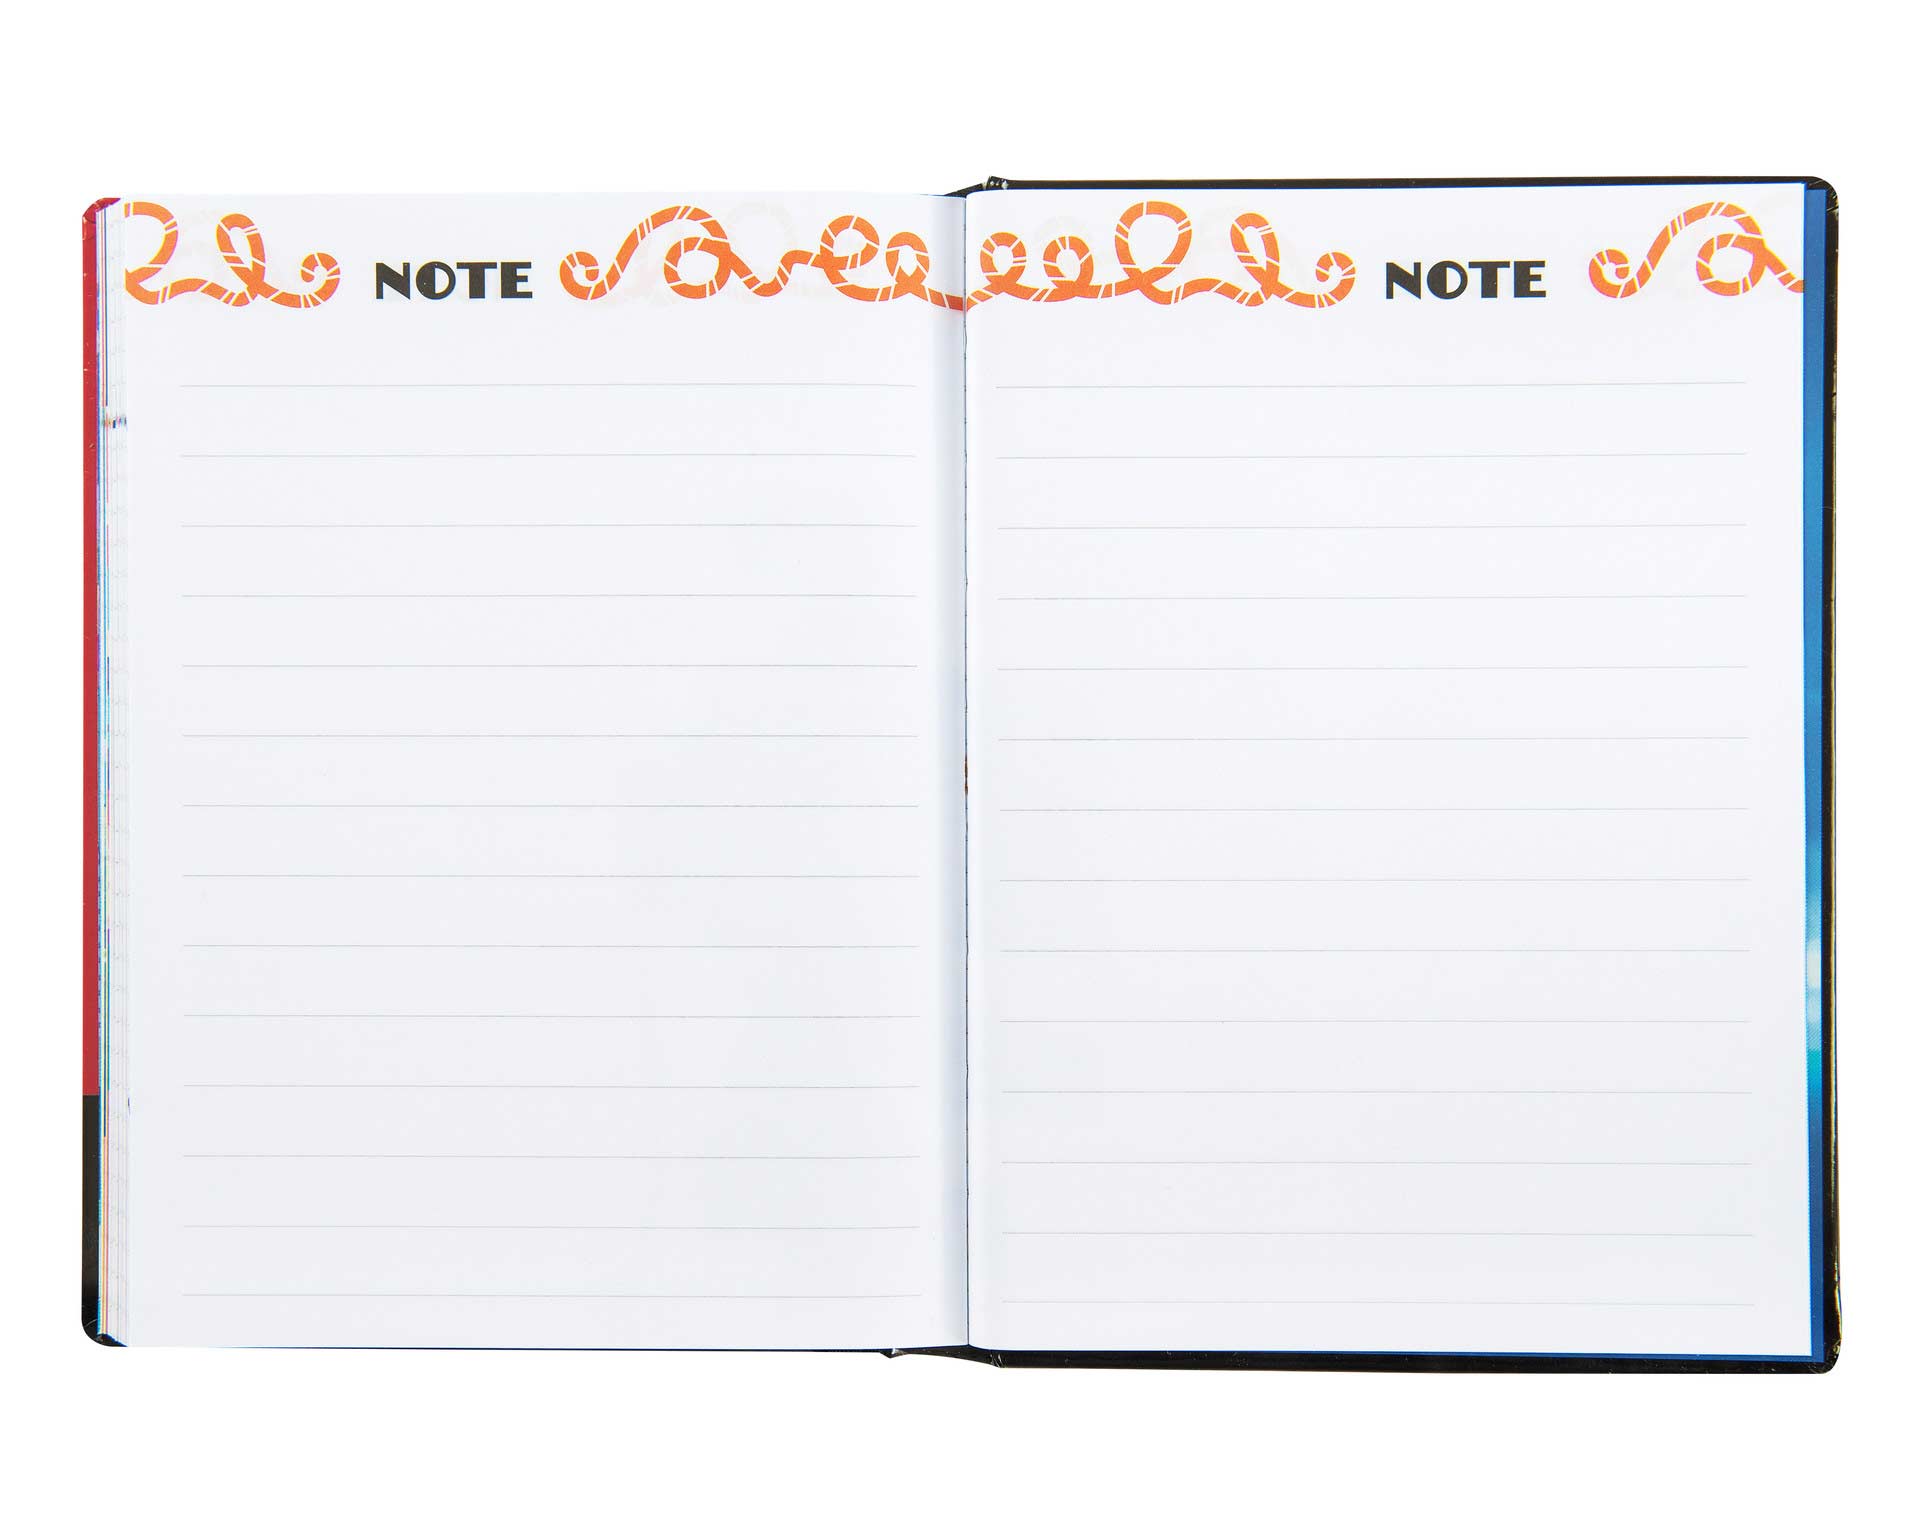 NOTE
NOTE